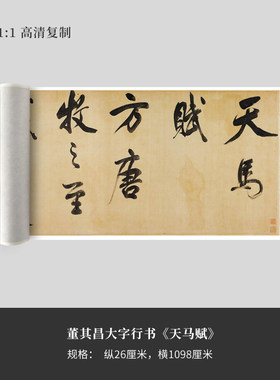 1:1 高清复制
天馬
賦
方唐
牧之至
董其昌大字行书《天马赋》
规格： 纵26厘米，横1098厘米